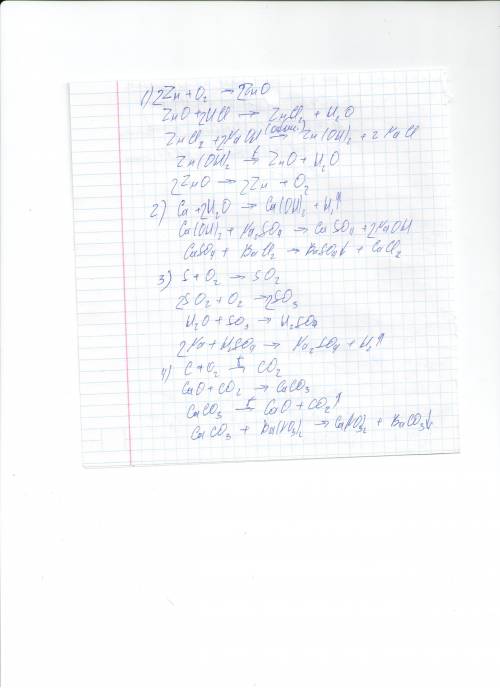 1) 2Zn + O₂ → 2ZnO
ZnO + 2HCl → ZnCl₂ + H₂O
ZnCl₂ + 2NaOH → Zn(OH)₂ + 2NaCl
Zn(OH)₂ →ᵗ ZnO + H₂O
2ZnO → 2Zn + O₂
2) Ca + 2H₂O → Ca(OH)₂ + H₂↑
Ca(OH)₂ + Na₂SO₄ → CaSO₄ + 2NaOH
CaSO₄ + BaCl₂ → BaSO₄↓ + CaCl₂
3) S + O₂ → SO₂
2SO₂ + O₂ → 2SO₃
H₂O + SO₃ → H₂SO₄
2Na + H₂SO₄ → Na₂SO₄ + H₂↑
4) C + O₂ →ᵗ CO₂
CaO + CO₂ → CaCO₃
CaCO₃ →ᵗ CaO + CO₂↑
CaCO₃ + Ba(NO₃)₂ → Ca(NO₃)₂ + BaCO₃↓